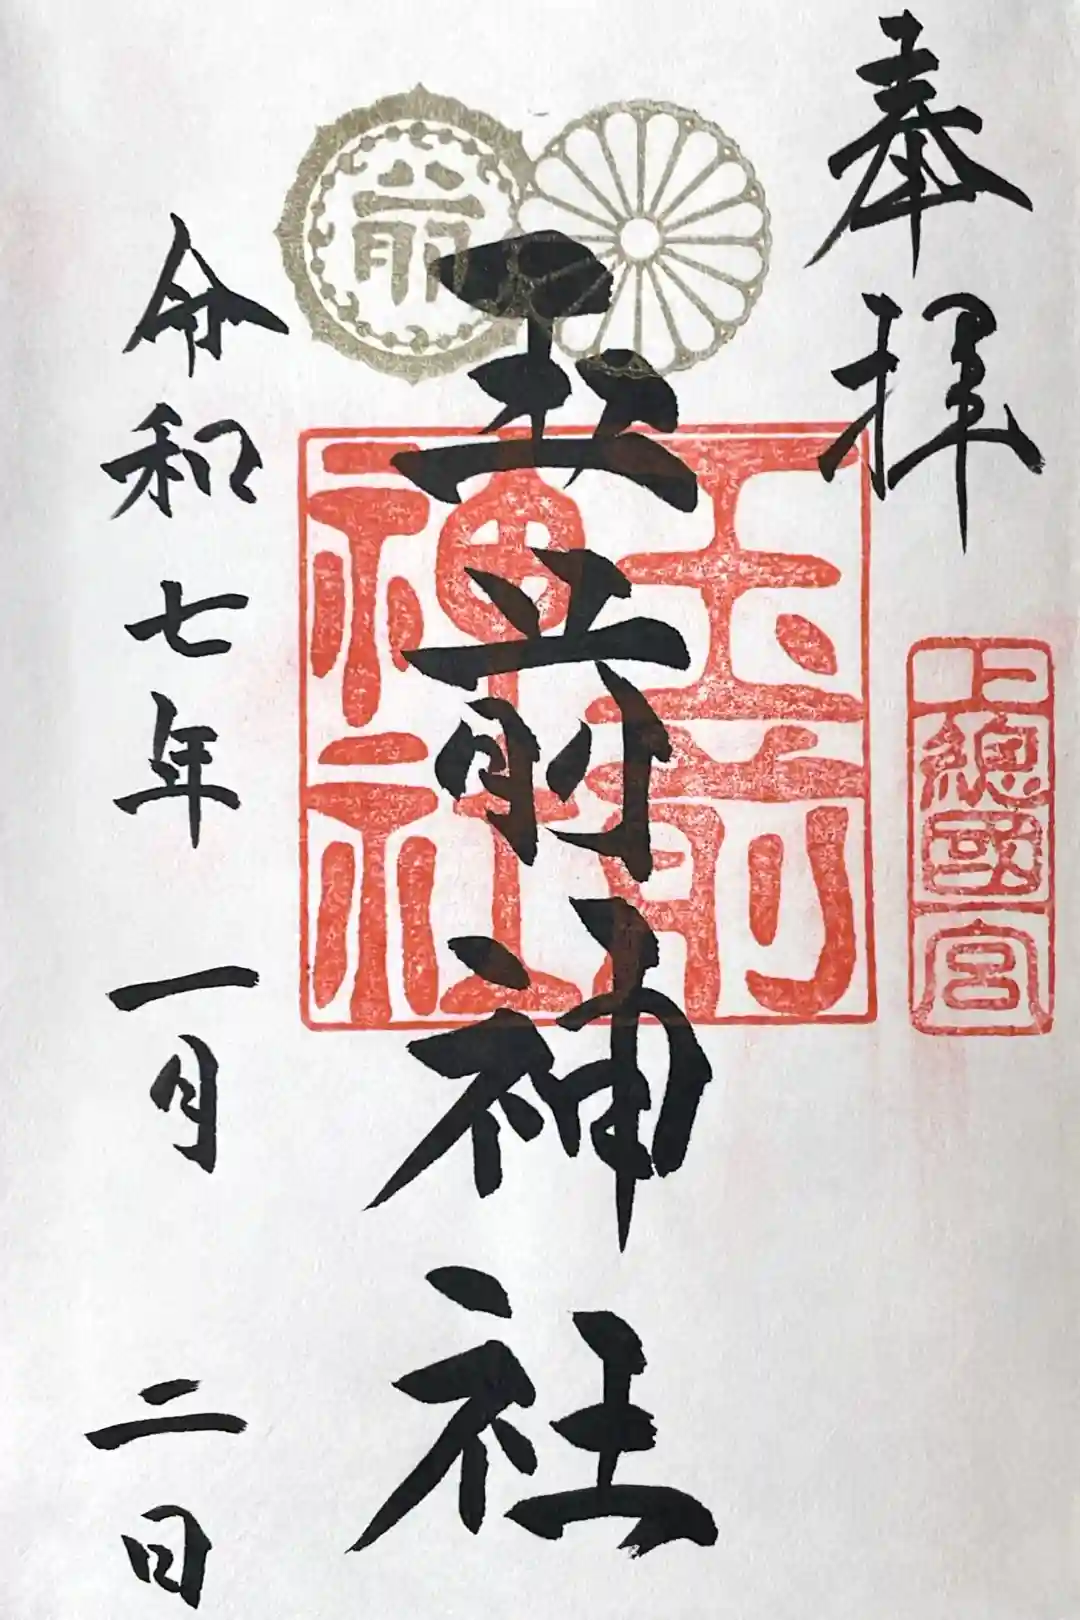 奉拝
上總國一宮
玉前神社
玉前神社
令和七年一月二日